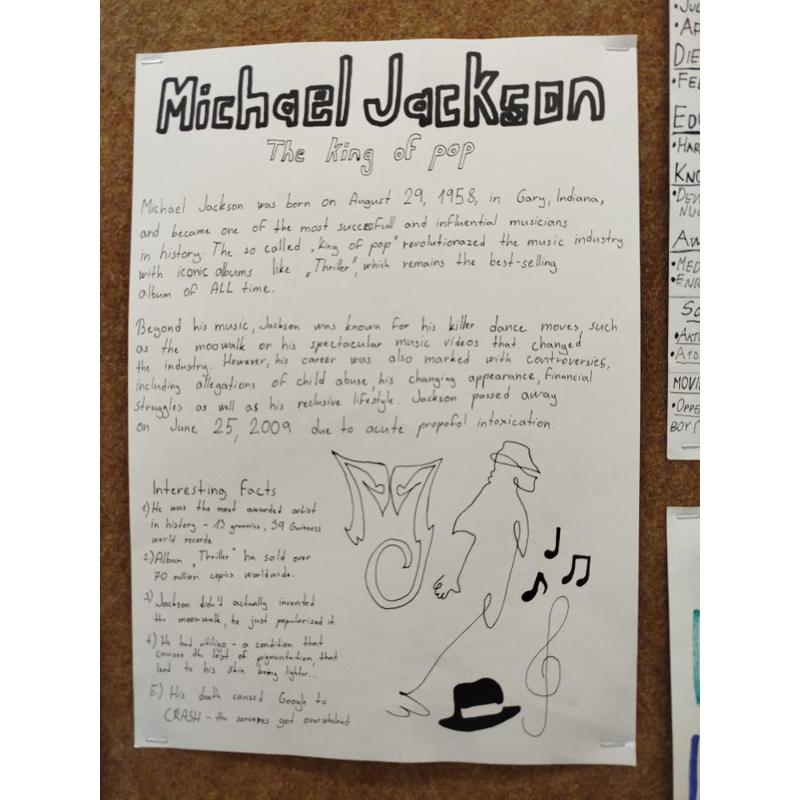 Michael Jackson
The King of pop
Michael Jackson was born on August 29, 1958, in Gary, Indiana,
and became one of the most succesfull and influential musicians
in history. The so called „King of pop" revolutionazed the music industry
with iconic albums like „Thriller", which remains the best-selling
album of ALL time.
Beyond his music, Jackson was known for his killer dance moves, such
as the moowalk or his spectacular music videos that changed
the industry. However, his career was also marked with controversies,
including allegations of child abuse, his changing appearance, financial
struggles as well as his reclusive lifestyle. Jackson passed away
on June 25, 2009 due to acute propofol intoxication.
Interesting Facts
1) He was the most awarded artist
in history - 13 grammies, 39 Guinness
world records.
2) Album „Thriller" has sold over
70 million copies worldwide.
3) Jackson didn't actually invented
the moonwalk, he just popularized it.
4) He had vitiligo - a condition that
causes the lost of pigmentation, that
lead to his skin being lighter...
5.) His death caused Google to
CRASH - the servers got overwhelmed
• JUL
• AP
DIE
• FE
EDU
• HAR
KNO
• DEV
NUC
AW
• MED
• ENR
SC
• AKTO
• ATO
MOVI
• OPPE
BOY